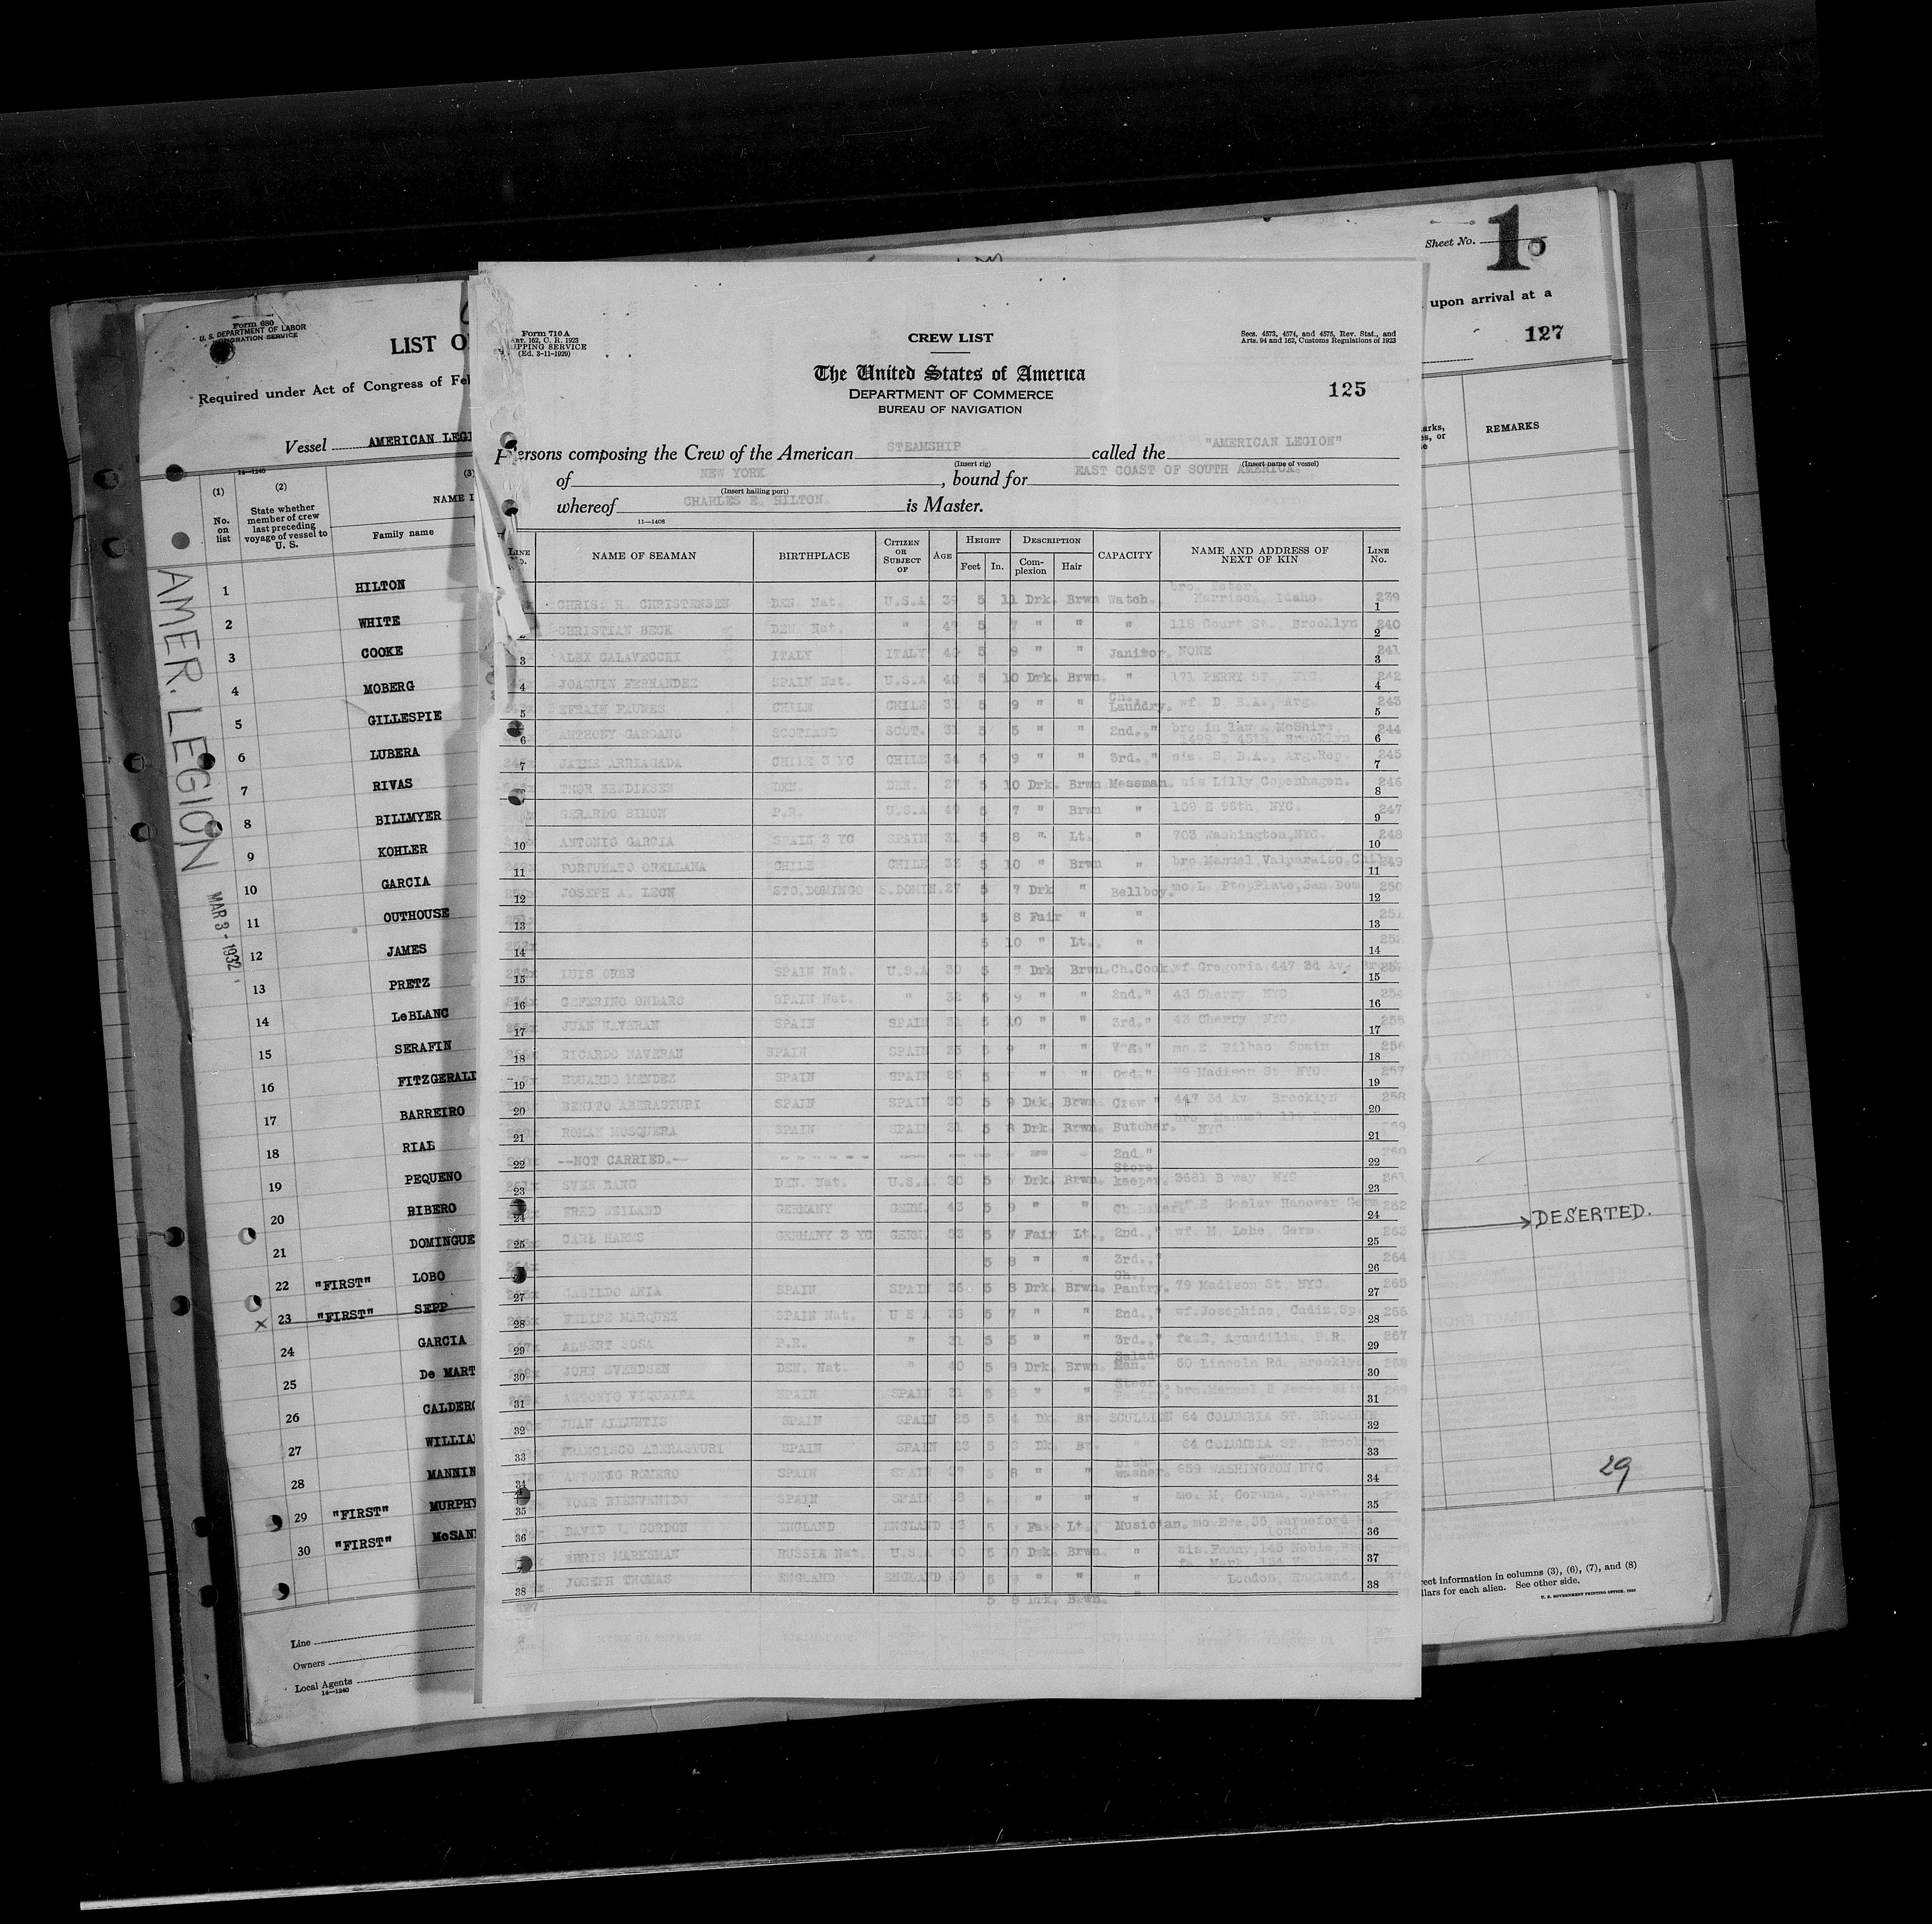 Form 680
U. S. DEPARTMENT OF LABOR
IMMIGRATION SERVICE
LIST O
Required under Act of Congress of Feb
Vessel AMERICAN LEGI
14—1240
(1) (2) (3)
No. on list
State whether member of crew last preceding voyage of vessel to U. S.
NAME I
Family name
AMER. LEGION
MAR 3 - 1932
1 HILTON
2 WHITE
3 COOKE
4 MOBERG
5 GILLESPIE
6 LUBERA
7 RIVAS
8 BILLMYER
9 KOHLER
10 GARCIA
11 OUTHOUSE
12 JAMES
13 PRETZ
14 LeBLANC
15 SERAFIN
16 FITZGERALD
17 BARREIRO
18 RIAL
19 PEQUENO
20 RIBERO
21 DOMINGUE
22 "FIRST" LOBO
x 23 "FIRST" SEPP
24 GARCIA
25 De MART
26 CALDERO
27 WILLIA
28 MANNIN
29 "FIRST" MURPHY
30 "FIRST" McSAN
Line
Owners
Local Agents
14—1240
Form 710 A
ART. 162, C. R. 1923
SHIPPING SERVICE
(Ed. 3-11-1929)
CREW LIST
Secs. 4573, 4574, and 4575, Rev. Stat., and
Arts. 94 and 162, Customs Regulations of 1923
The United States of America
DEPARTMENT OF COMMERCE
BUREAU OF NAVIGATION
125
Persons composing the Crew of the American STEAMSHIP called the "AMERICAN LEGION"
(Insert rig) (Insert name of vessel)
of NEW YORK, bound for EAST COAST OF SOUTH AMERICA.
(Insert hailing port)
whereof CHARLES E. HILTON. is Master.
11—1408
LINE No. NAME OF SEAMAN BIRTHPLACE CITIZEN OR SUBJECT OF AGE HEIGHT Feet In. DESCRIPTION Complexion Hair CAPACITY NAME AND ADDRESS OF NEXT OF KIN LINE No.
CHRIS. H. CHRISTENSEN DEN. Nat. U.S.A 39 5 11 Drk. Brwn Watch. bro. Peter, Harrison, Idaho. 239 1
2 CHRISTIAN BECK DEN. Nat. " 47 5 7 " " " 118 Court St., Brooklyn 240 2
3 ALEX CALAVECCHI ITALY ITALY 5 9 " " Janitor. NONE 241 3
4 JOAQUIN FERNANDEZ SPAIN Nat. U.S.A 40 5 10 Drk. Brwn. " 171 PERRY ST. NYC 242 4
5 EFRAIN FAUNES CHILE CHILE 5 9 " " Ch. Laundry. wf. D, B.A., Arg. 243 5
6 ANTHONY GARGANO SCOTLAND SCOT. 5 5 " " 2nd.," bro.in law McShire, 1498 E 45th, Brooklyn 244 6
7 JAIME ARRIAGADA CHILE 3 YC CHILE 34 5 9 " " 3rd.," sis. S, B.A., Arg.Rep. 245 7
THOR BENDIKSEN DEN. DEN. 27 5 10 Drk. Brwn Messman. sis Lilly Copenhagen. 246 8
GERARDO SIMON P.R. U.S.A 5 7 " Brwn " 109 E 96th, NYC. 247 9
10 ANTONIO GARCIA SPAIN 3 YC SPAIN 31 5 8 " Lt. " 703 Washington,NYC. 248 10
11 FORTUNATO ORELLANA CHILE CHILE 5 10 " Brwn " bro.Manuel,Valparaiso,Chile 249 11
12 JOSEPH A. LEON STO.DOMINGO S.DOMIN. 27 5 7 Drk " Bellboy. 250 12
13 5 8 Fair " " 251 13
14 5 10 " Lt. " 252 14
15 LUIS ORBE SPAIN Nat. U.S.A 30 5 7 Drk Brwn. Ch.Cook. wf Gregoria 447 3d Av. 15
16 CEFERINO ONDARO SPAIN Nat. " 32 5 9 " " 2nd." 43 Cherry NYC 254 16
17 JUAN NAVERAN SPAIN SPAIN 31 5 10 " " 3rd." 43 Cherry NYC 255 17
18 RICARDO NAVERAN SPAIN SPAIN 35 5 9 " " Veg." mo.E Bilbao Spain 256 18
19 EDUARDO MENDEZ SPAIN SPAIN 5 " " " 79 Madison St NYC 257 19
20 BENITO ABERASTURI SPAIN SPAIN 30 5 9 Drk. Brwn. Crew " 447 3d Av Brooklyn 258 20
21 ROMAN MOSQUERA SPAIN SPAIN 31 5 8 Drk. Brwn. Butcher. bro. Manuel NYC 21
22 --NOT CARRIED.-- 2nd." 22
23 SVEN BANG DEN. Nat. U.S.A. 30 5 7 Drk. Brwn. Store keeper. 3681 B way NYC 23
24 FRED WEILAND GERMANY GERM. 43 5 9 " " Ch.Baker. wf.E Goslar Hanover Germ 262 24
25 CARL HARMS GERMANY 3 YC GERM. 53 5 7 Fair Lt. 2nd.," wf. M Lehe, Germ. 263 25
5 8 " " 3rd.," 264 26
27 CASILDO ANIA SPAIN SPAIN 36 5 8 Drk. Brwn. Ch., Pantry. 79 Madison St, NYC. 265 27
28 FELIPE MARQUEZ SPAIN Nat. U S A 5 7 " " 2nd.," wf.Josephine, Cadiz,Sp. 266 28
29 ALBERT SOSA P.R. " 31 5 5 " " 3rd.," Aguadilla, P.R. 267 29
30 JOHN SVENDSEN DEN. Nat. " 40 5 9 Drk. Brwn. Salad Man. 50 Lincoln Rd.,Brooklyn 268 30
31 ANTONIO VIQUEIRA SPAIN SPAIN 5 8 " " Pantry. bro.Manuel, 31
32 JUAN ALLUNTIS SPAIN SPAIN 25 5 4 Dk. Br. SCULLION 64 COLUMBIA ST. BROOKLYN 32
33 FRANCISCO ABERASTURI SPAIN SPAIN 5 Dk. Br. " 64 COLUMBIA ST., Brooklyn 33
34 ANTONIO ROMERO SPAIN SPAIN 5 8 " " Dish washer. 659 WASHINGTON NYC. 34
35 BIENVENIDO SPAIN SPAIN " " " mo. M Coruna, Spain. 35
36 DAVID GORDON ENGLAND ENGLAND 5 Lt. Musician. mo Eva,35 Warneford 36
MARKSMAN RUSSIA Nat. U.S.A 5 10 Drk. Brwn. " sis.Fanny,145 Noble, 37
38 JOSEPH THOMAS ENGLAND ENGLAND 5 9 " " " London, England. 38
5 8 Drk. Brwn. "
Sheet No. 1
upon arrival at a
127
REMARKS
DESERTED.
29
rect information in columns (3), (6), (7), and (8)
llars for each alien. See other side.
U. S. GOVERNMENT PRINTING OFFICE: 1930